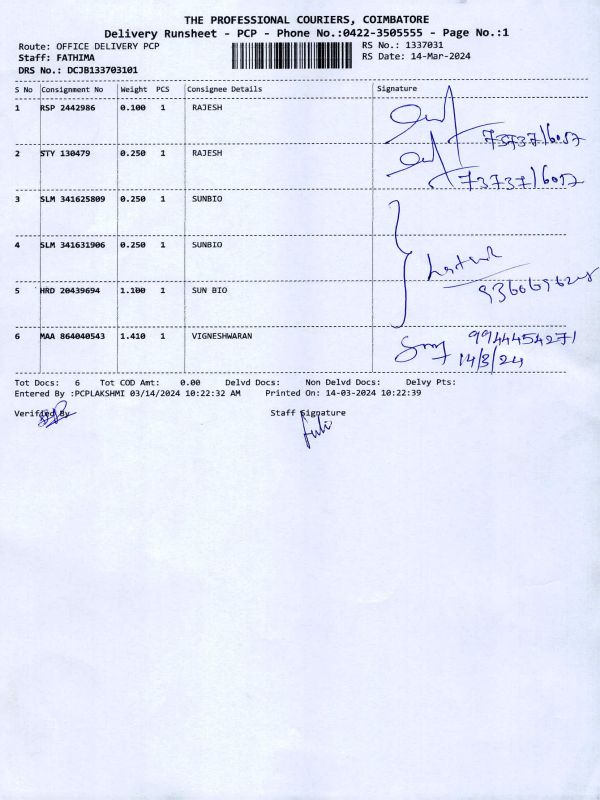 THE PROFESSIONAL COURIERS, COIMBATORE
Delivery Runsheet - PCP - Phone No.:0422-3505555 - Page No.:1
Route: OFFICE DELIVERY PCP RS No.: 1337031
Staff: FATHIMA RS Date: 14-Mar-2024
DRS No.: DCJB133703101
S No Consignment No Weight PCS Consignee Details Signature
1 RSP 2442986 0.100 1 RAJESH
7373716057
2 STY 130479 0.250 1 RAJESH
7373716057
3 SLM 341625809 0.250 1 SUNBIO
4 SLM 341631906 0.250 1 SUNBIO
5 HRD 20439694 1.100 1 SUN BIO
6 MAA 864040543 1.410 1 VIGNESHWARAN 9944454271
14/3/24
Tot Docs: 6 Tot COD Amt: 0.00 Delvd Docs: Non Delvd Docs: Delvy Pts:
Entered By :PCPLAKSHMI 03/14/2024 10:22:32 AM Printed On: 14-03-2024 10:22:39
Verified By Staff Signature